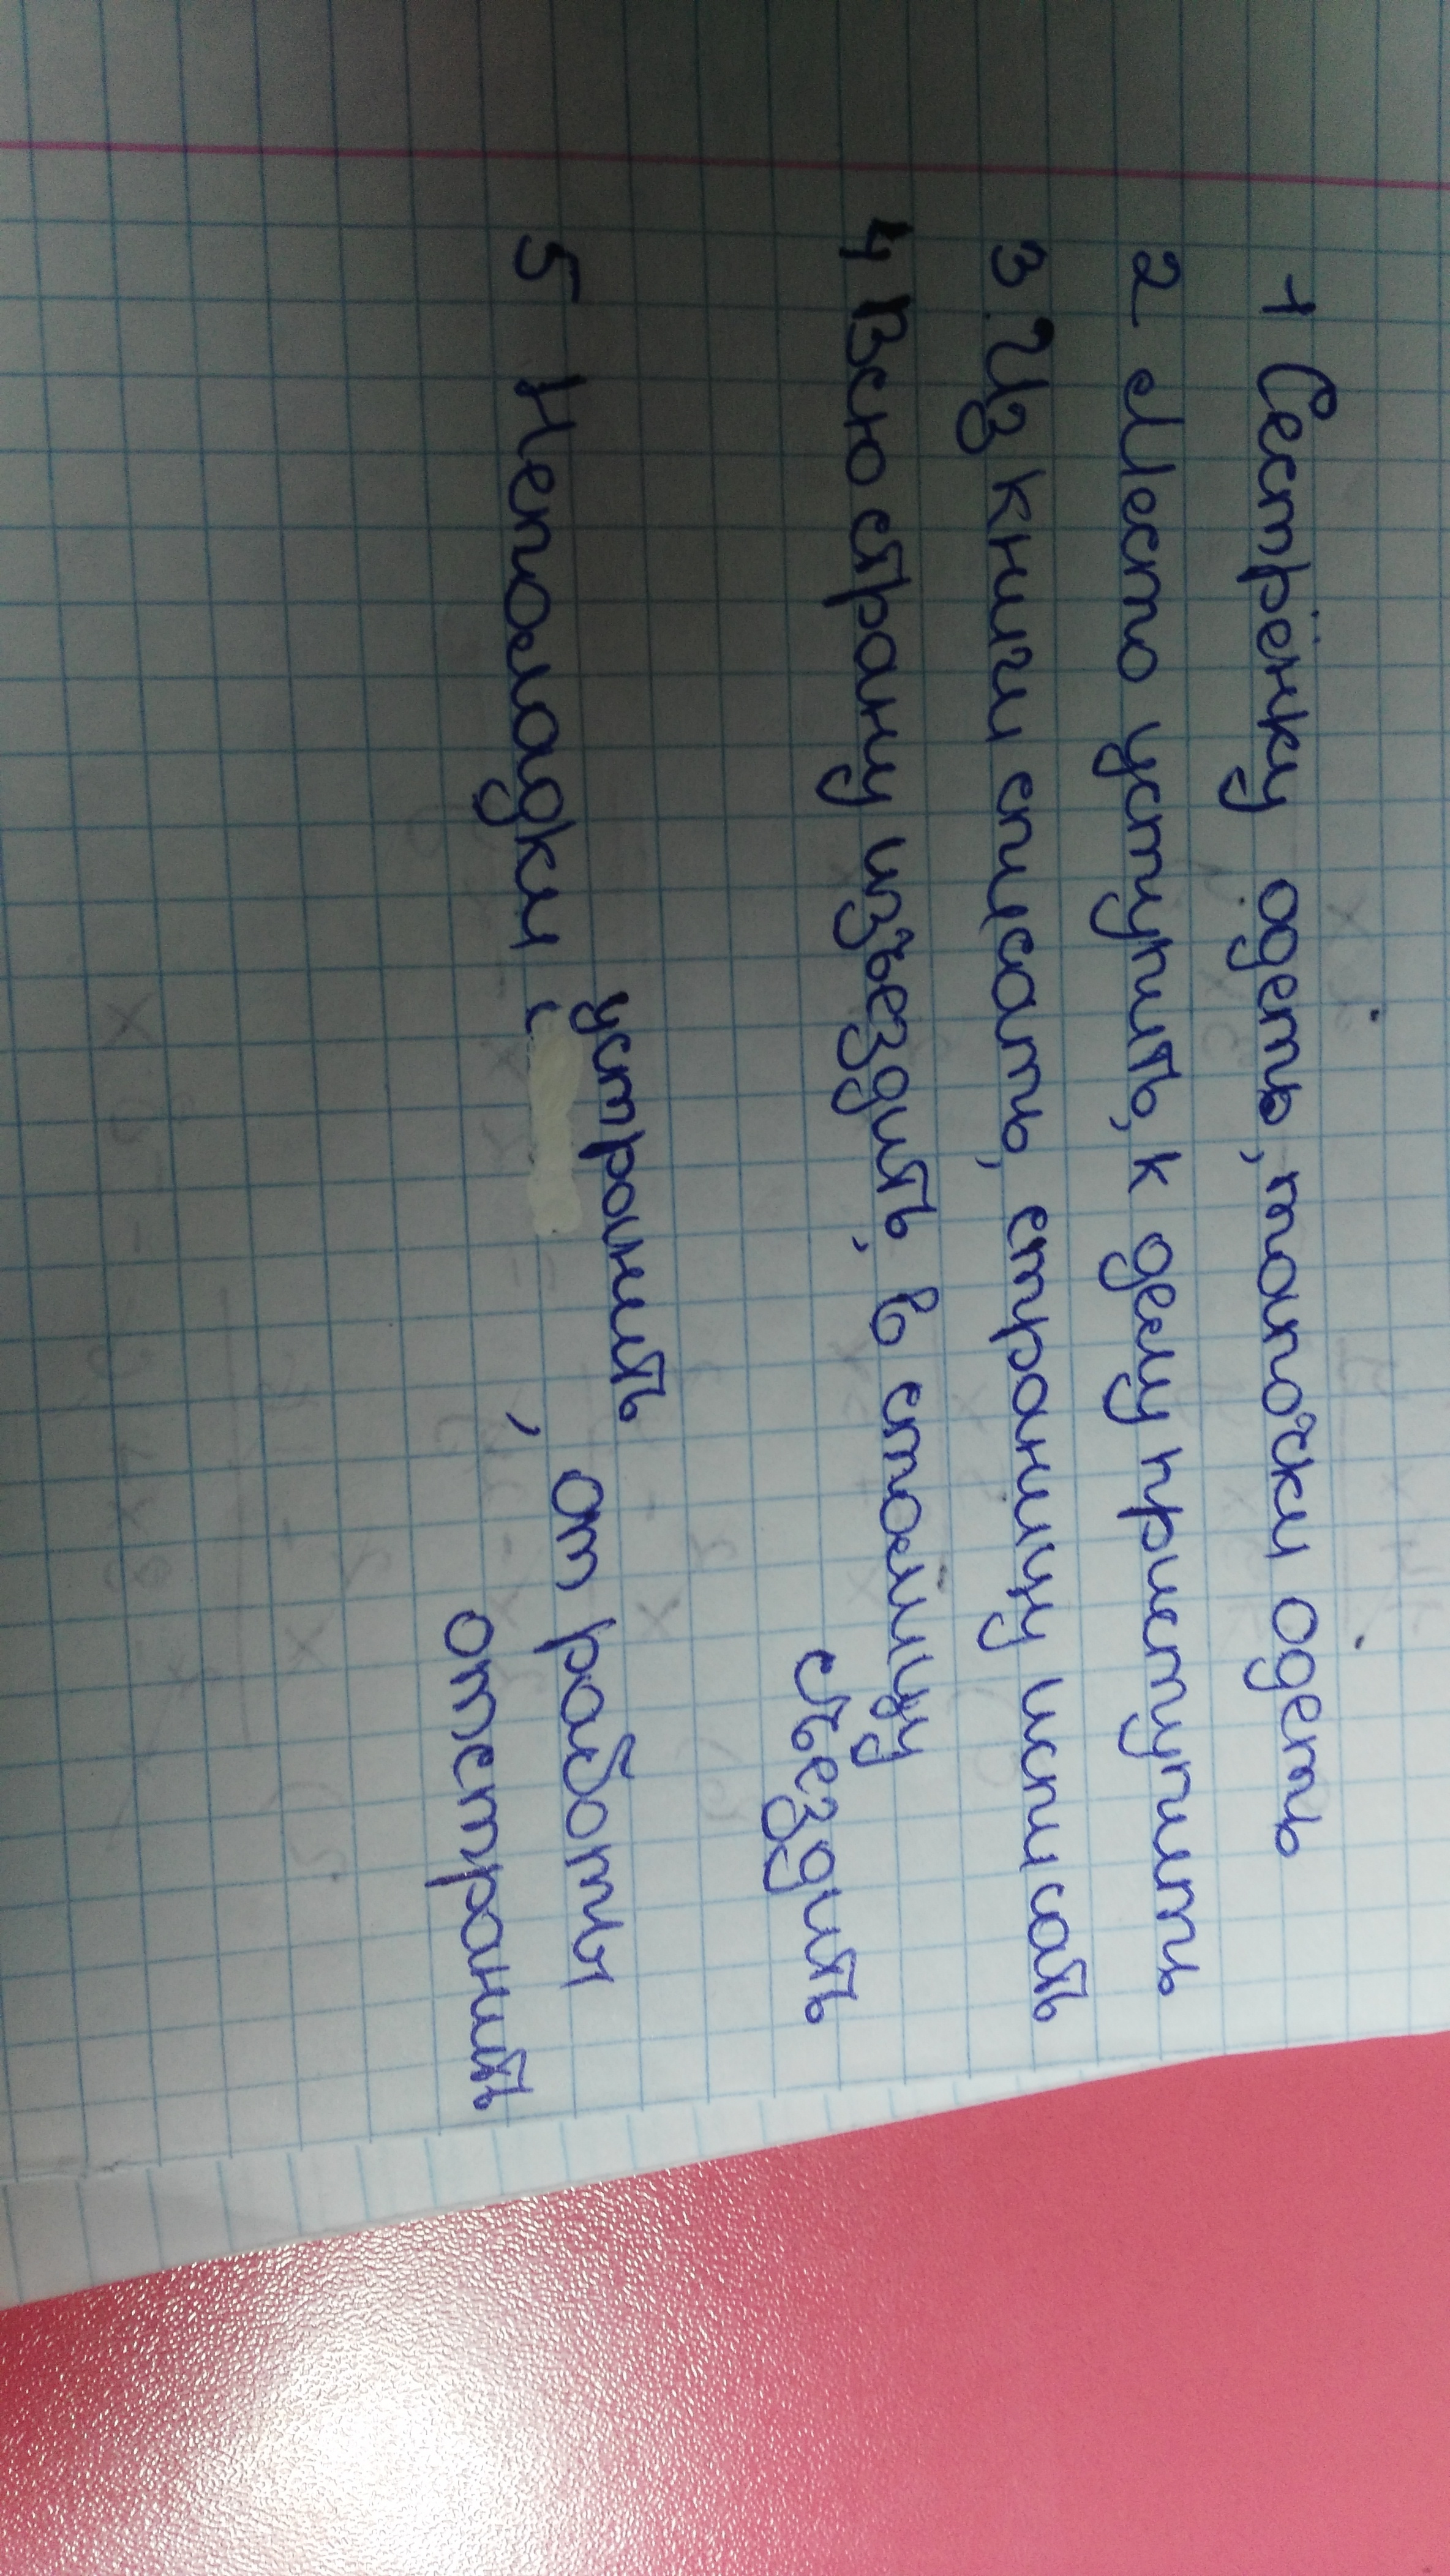 1 Сестрёнку одеть, тапочки одеть
2 Место уступить, к делу приступить
3. Из книги списать, страницу исписать
4 Всю страну изъездить, в столицу
съездить
устранить
5 Неполадки , от работы
отстранить